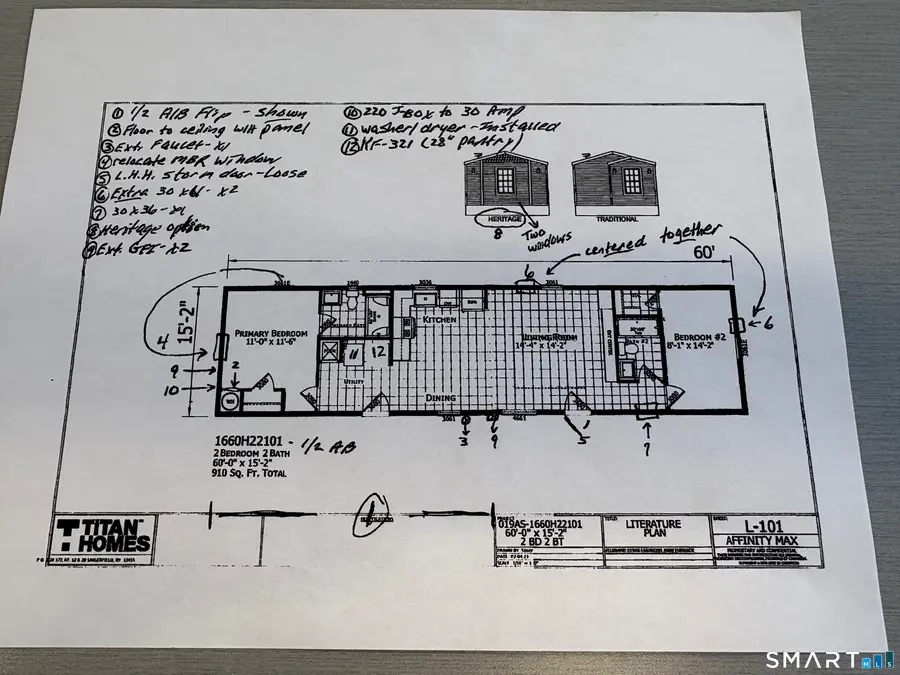 ① 1/2 A/B Flip - Shown
② Floor to ceiling WH panel
③ Ext. Faucet - x1
④ relocate MBR window
⑤ L.H.H. Storm door - Loose
⑥ Extra 30 x61 - x2
⑦ 30x36 - x1
⑧ Heritage option
⑨ Ext GFI - x2
⑩ 220 J-Box to 30 Amp
⑪ washer/dryer - Installed
⑫ KF-321 (28" pantry)
HERITAGE
TRADITIONAL
8
Two windows
centered together
60'
6
3036
3061
15'-2"
KITCHEN
PRIMARY BEDROOM
11'-0" x 11'-6"
14'-4" x 14'-2"
BEDROOM #2
8'-1" x 14'-2"
BATH #2
6
4
9
10
2
11
12
WH
UTILITY
DINING
3061
3
9
5
7
1660H22101 - 1/2 AB
2 BEDROOM 2 BATH
60'-0" x 15'-2"
910 SQ. FT. TOTAL
1
TITAN HOMES
019AS-1660H22101
60'-0" x 15'-2"
2 BD 2 BT
LITERATURE PLAN
L-101
AFFINITY MAX
PROPRIETARY AND CONFIDENTIAL
SMART MLS